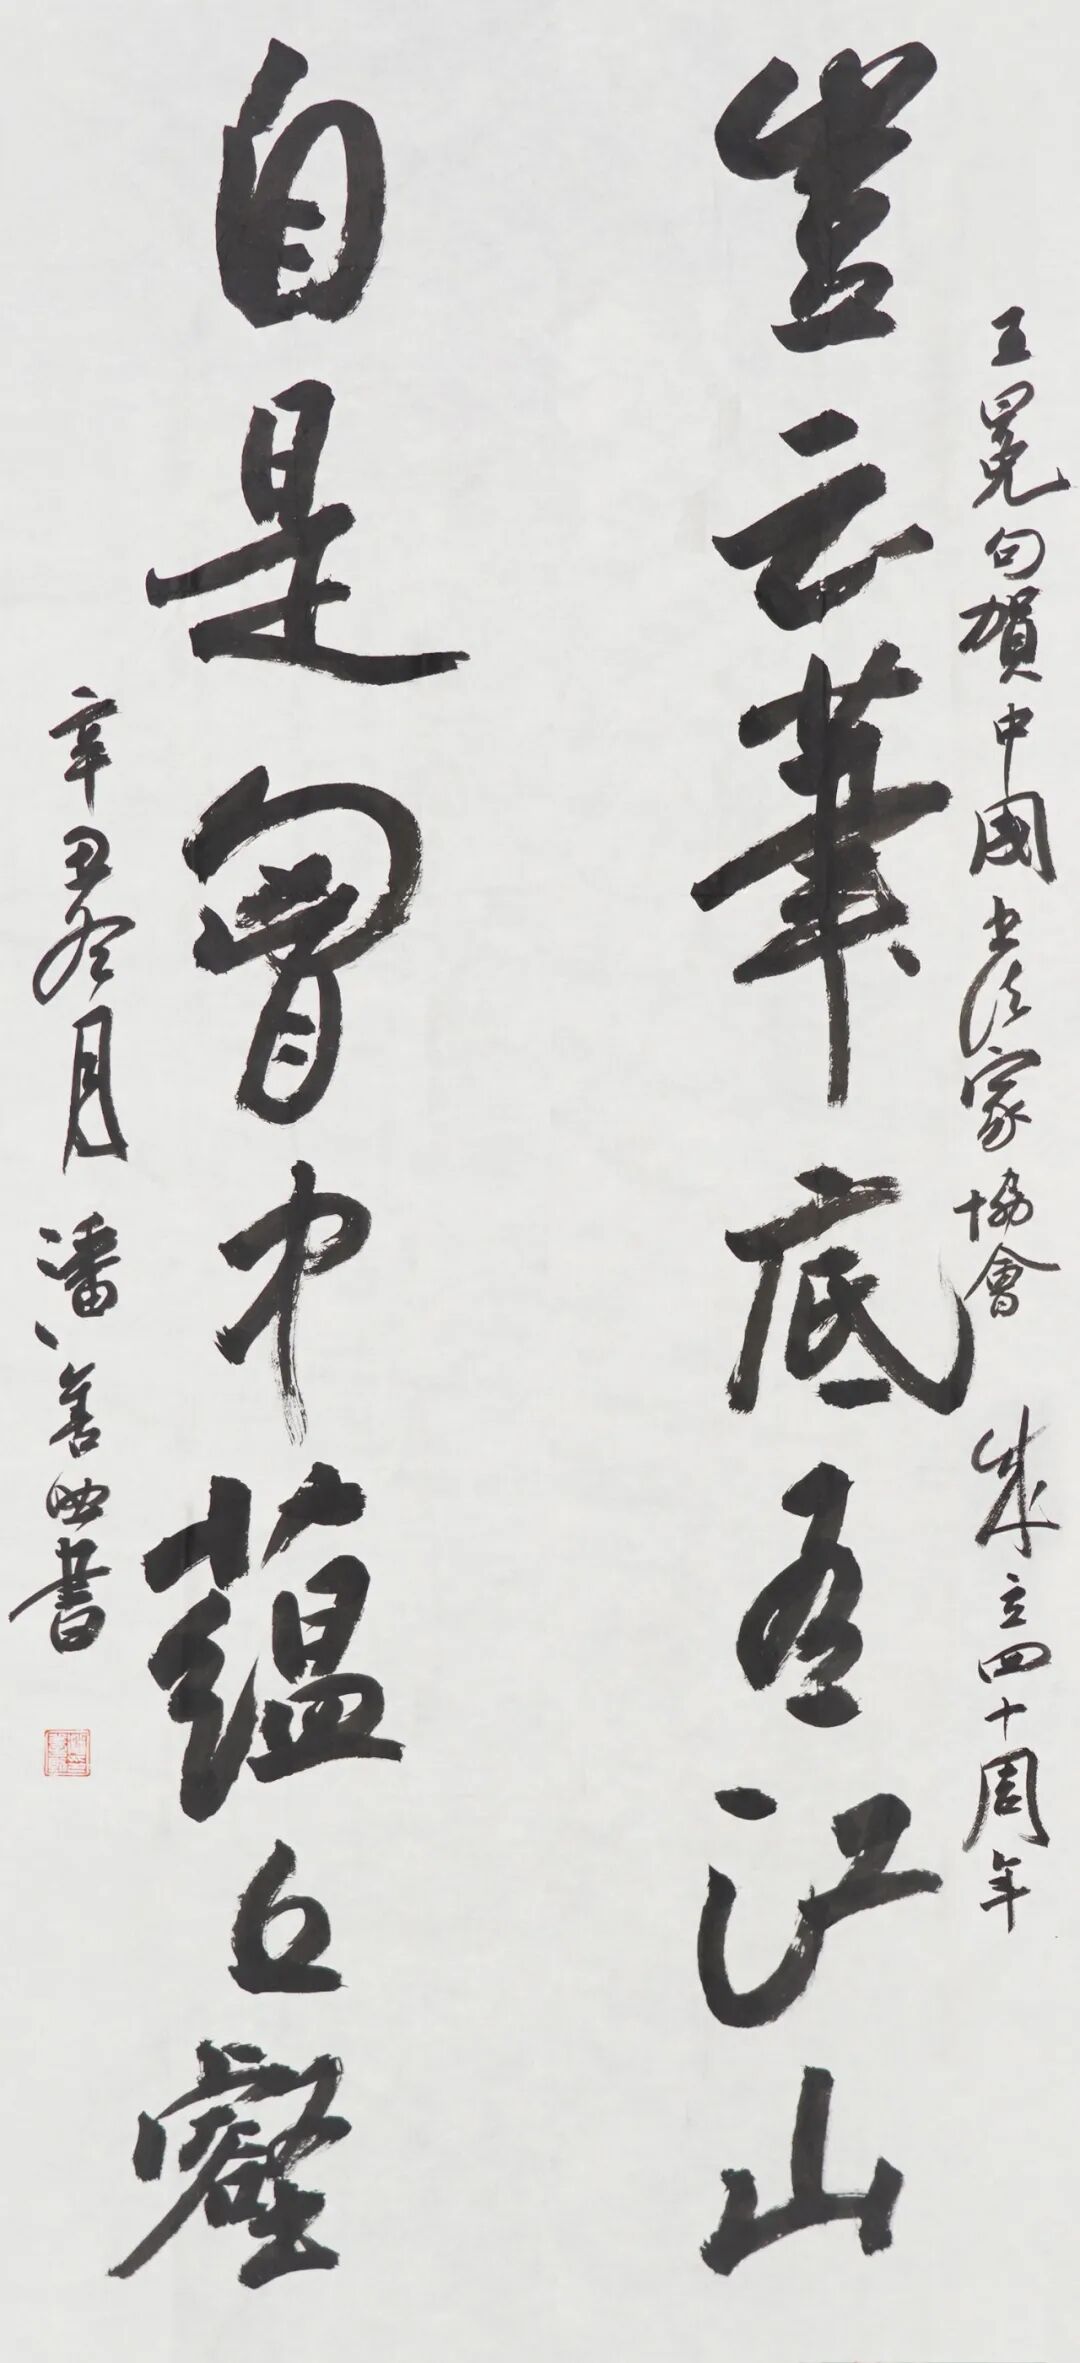 王冕句賀中國書法家協會成立四十周年
豈云筆底有江山
自是胷中蘊丘壑
辛丑冬月潘善助書